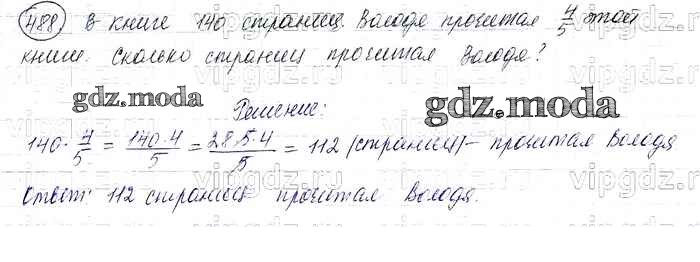 488. В книге 140 страниц. Володя прочитал 4/5 этой
книги. Сколько страниц прочитал Володя?
gdz.moda
gdz.moda
Решение:
140 · 4/5 = 140·4/5 = 28·5·4/5 = 112 (страниц) - прочитал Володя
Ответ: 112 страниц прочитал Володя.